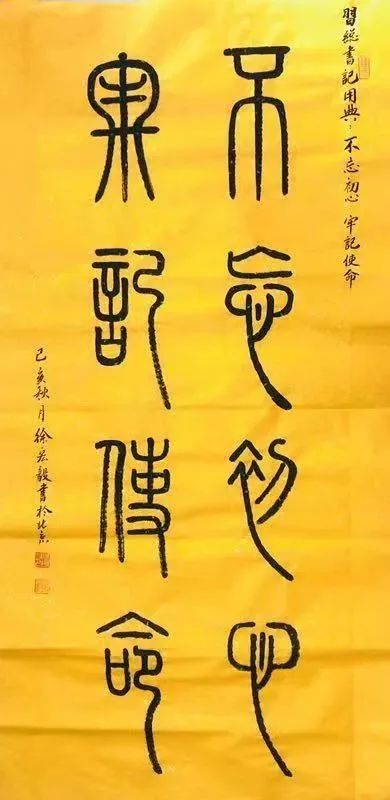 習總書記用典：不忘初心 牢記使命
不忘初心
牢記使命
己亥秋月徐宏毅書於北京